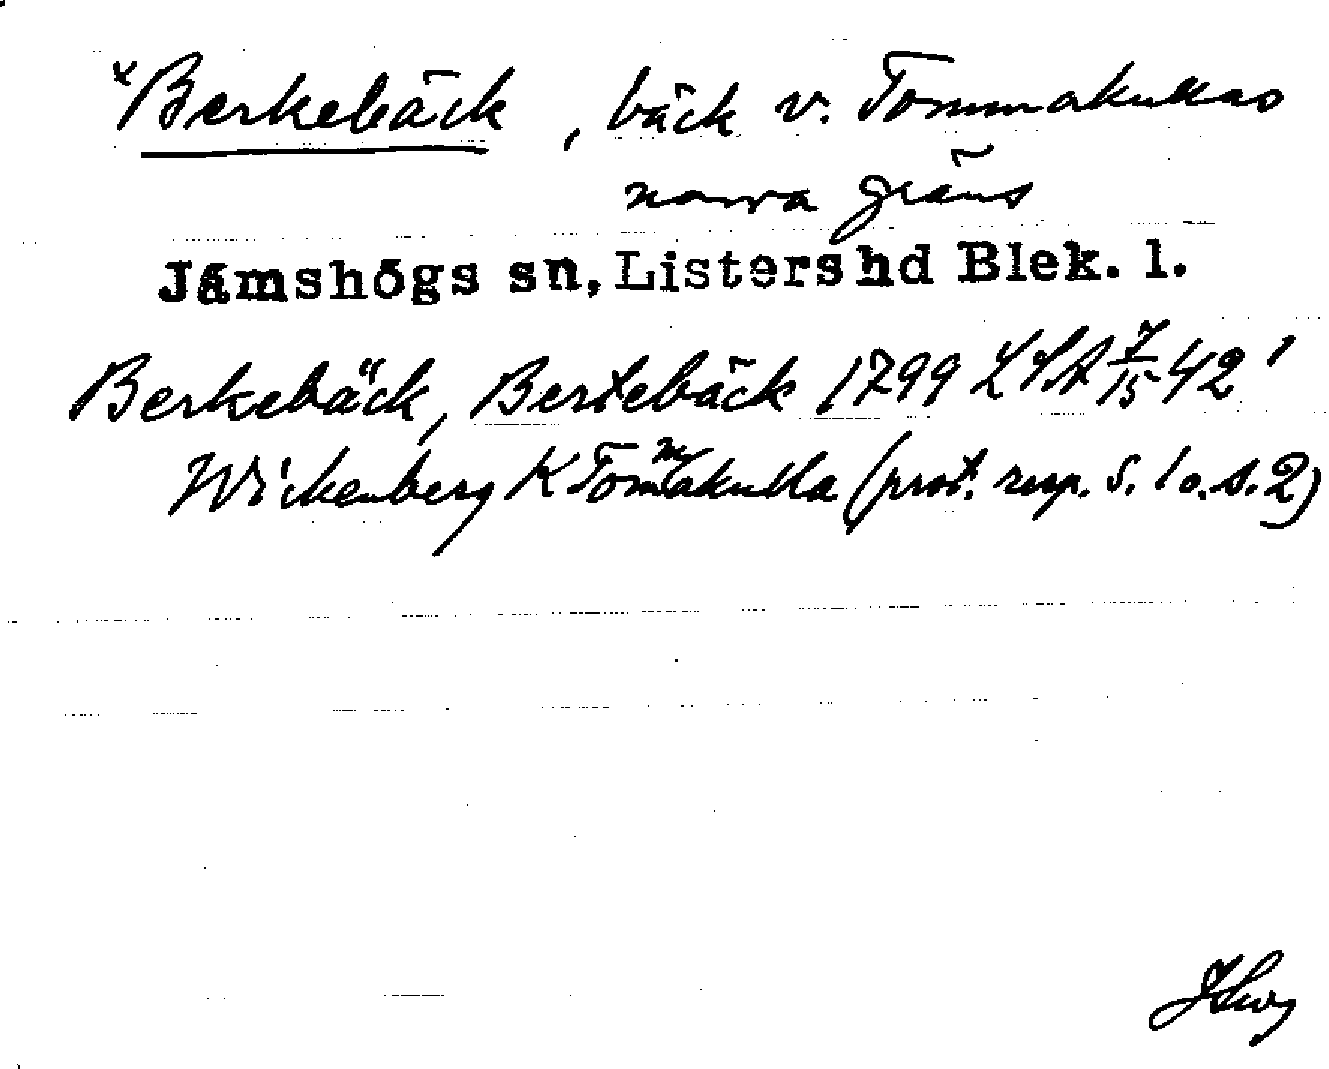 *Berkebäck, bäck v. Tommakullas
norra gräns
Jämshögs sn, Listers hd Blek. l.
Berkebäck, Bertebäck 1799 LSA 7/15 42'
Wickenberg K Tommakulla (prot. resp. s. 1 o. s. 2)